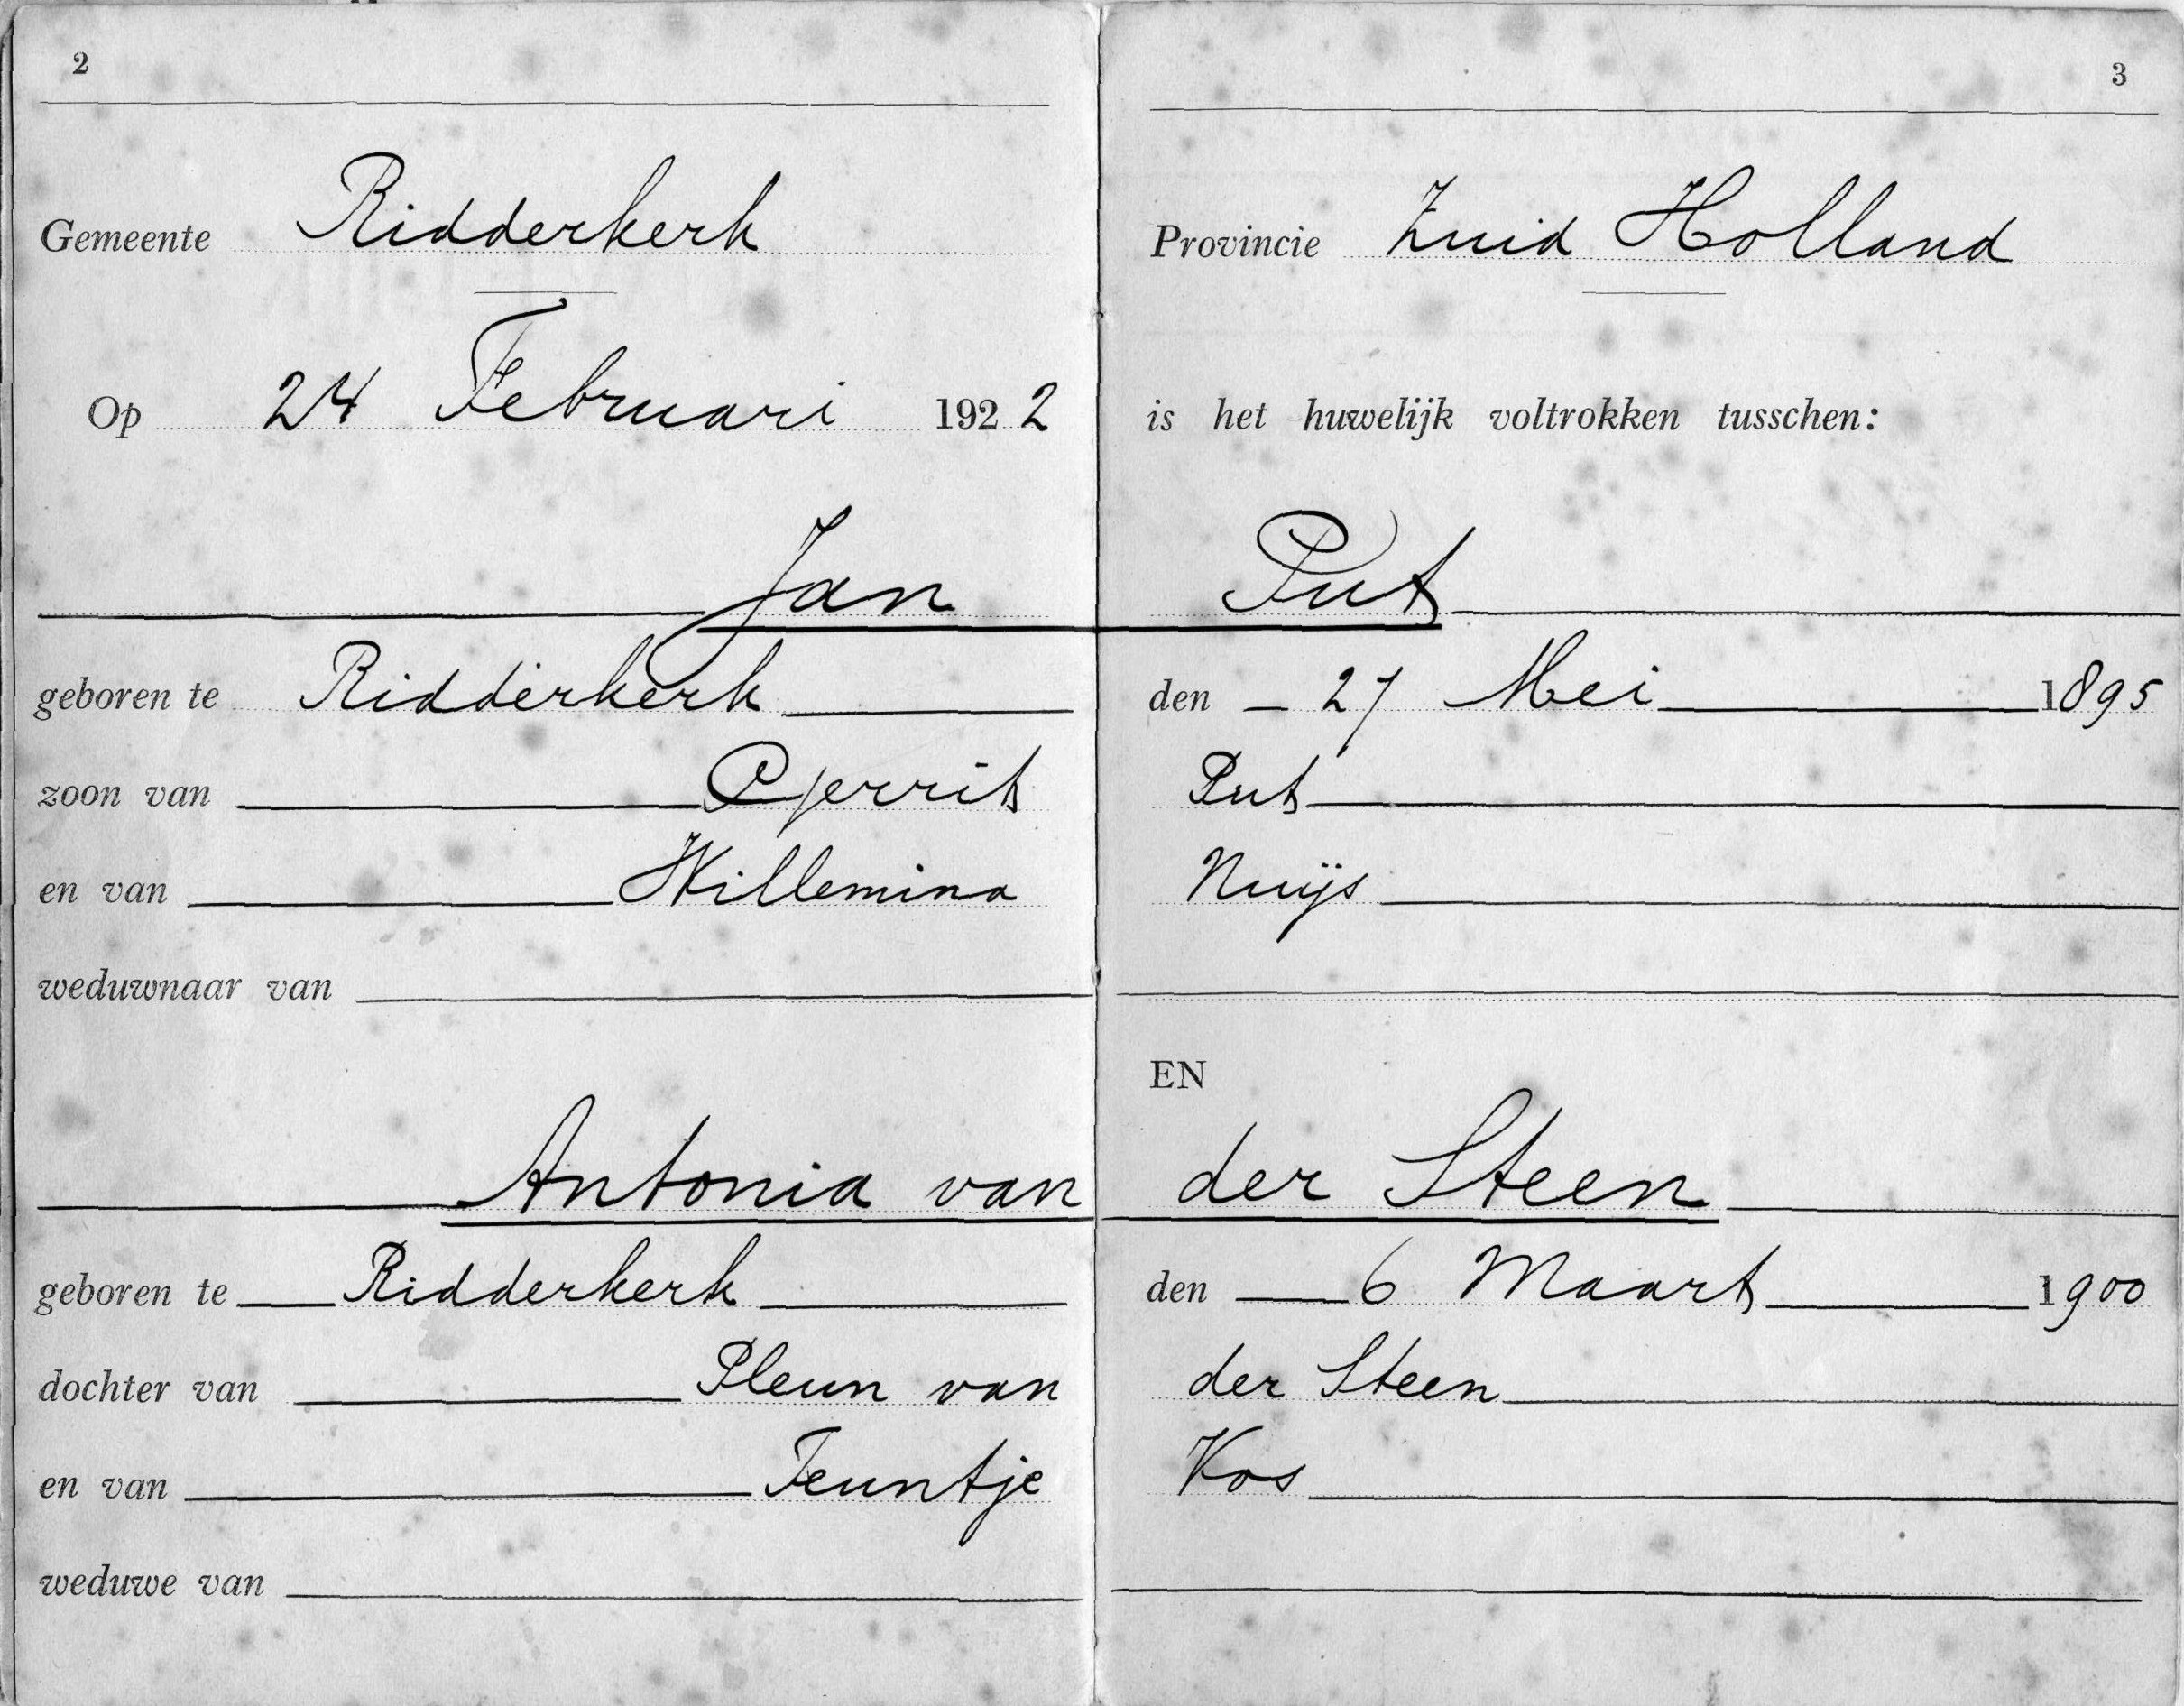 2
Gemeente Ridderkerk
Op 24 Februari 1922
Jan
geboren te Ridderkerk
zoon van Gerrit
en van Willemina
weduwnaar van
Antonia van
geboren te Ridderkerk
dochter van Pleun van
en van Teuntje
weduwe van
3
Provincie Zuid Holland
is het huwelijk voltrokken tusschen:
Put
den 27 Mei 1895
Put
Nuijs
EN
der Steen
den 6 Maart 1900
der Steen
Kos